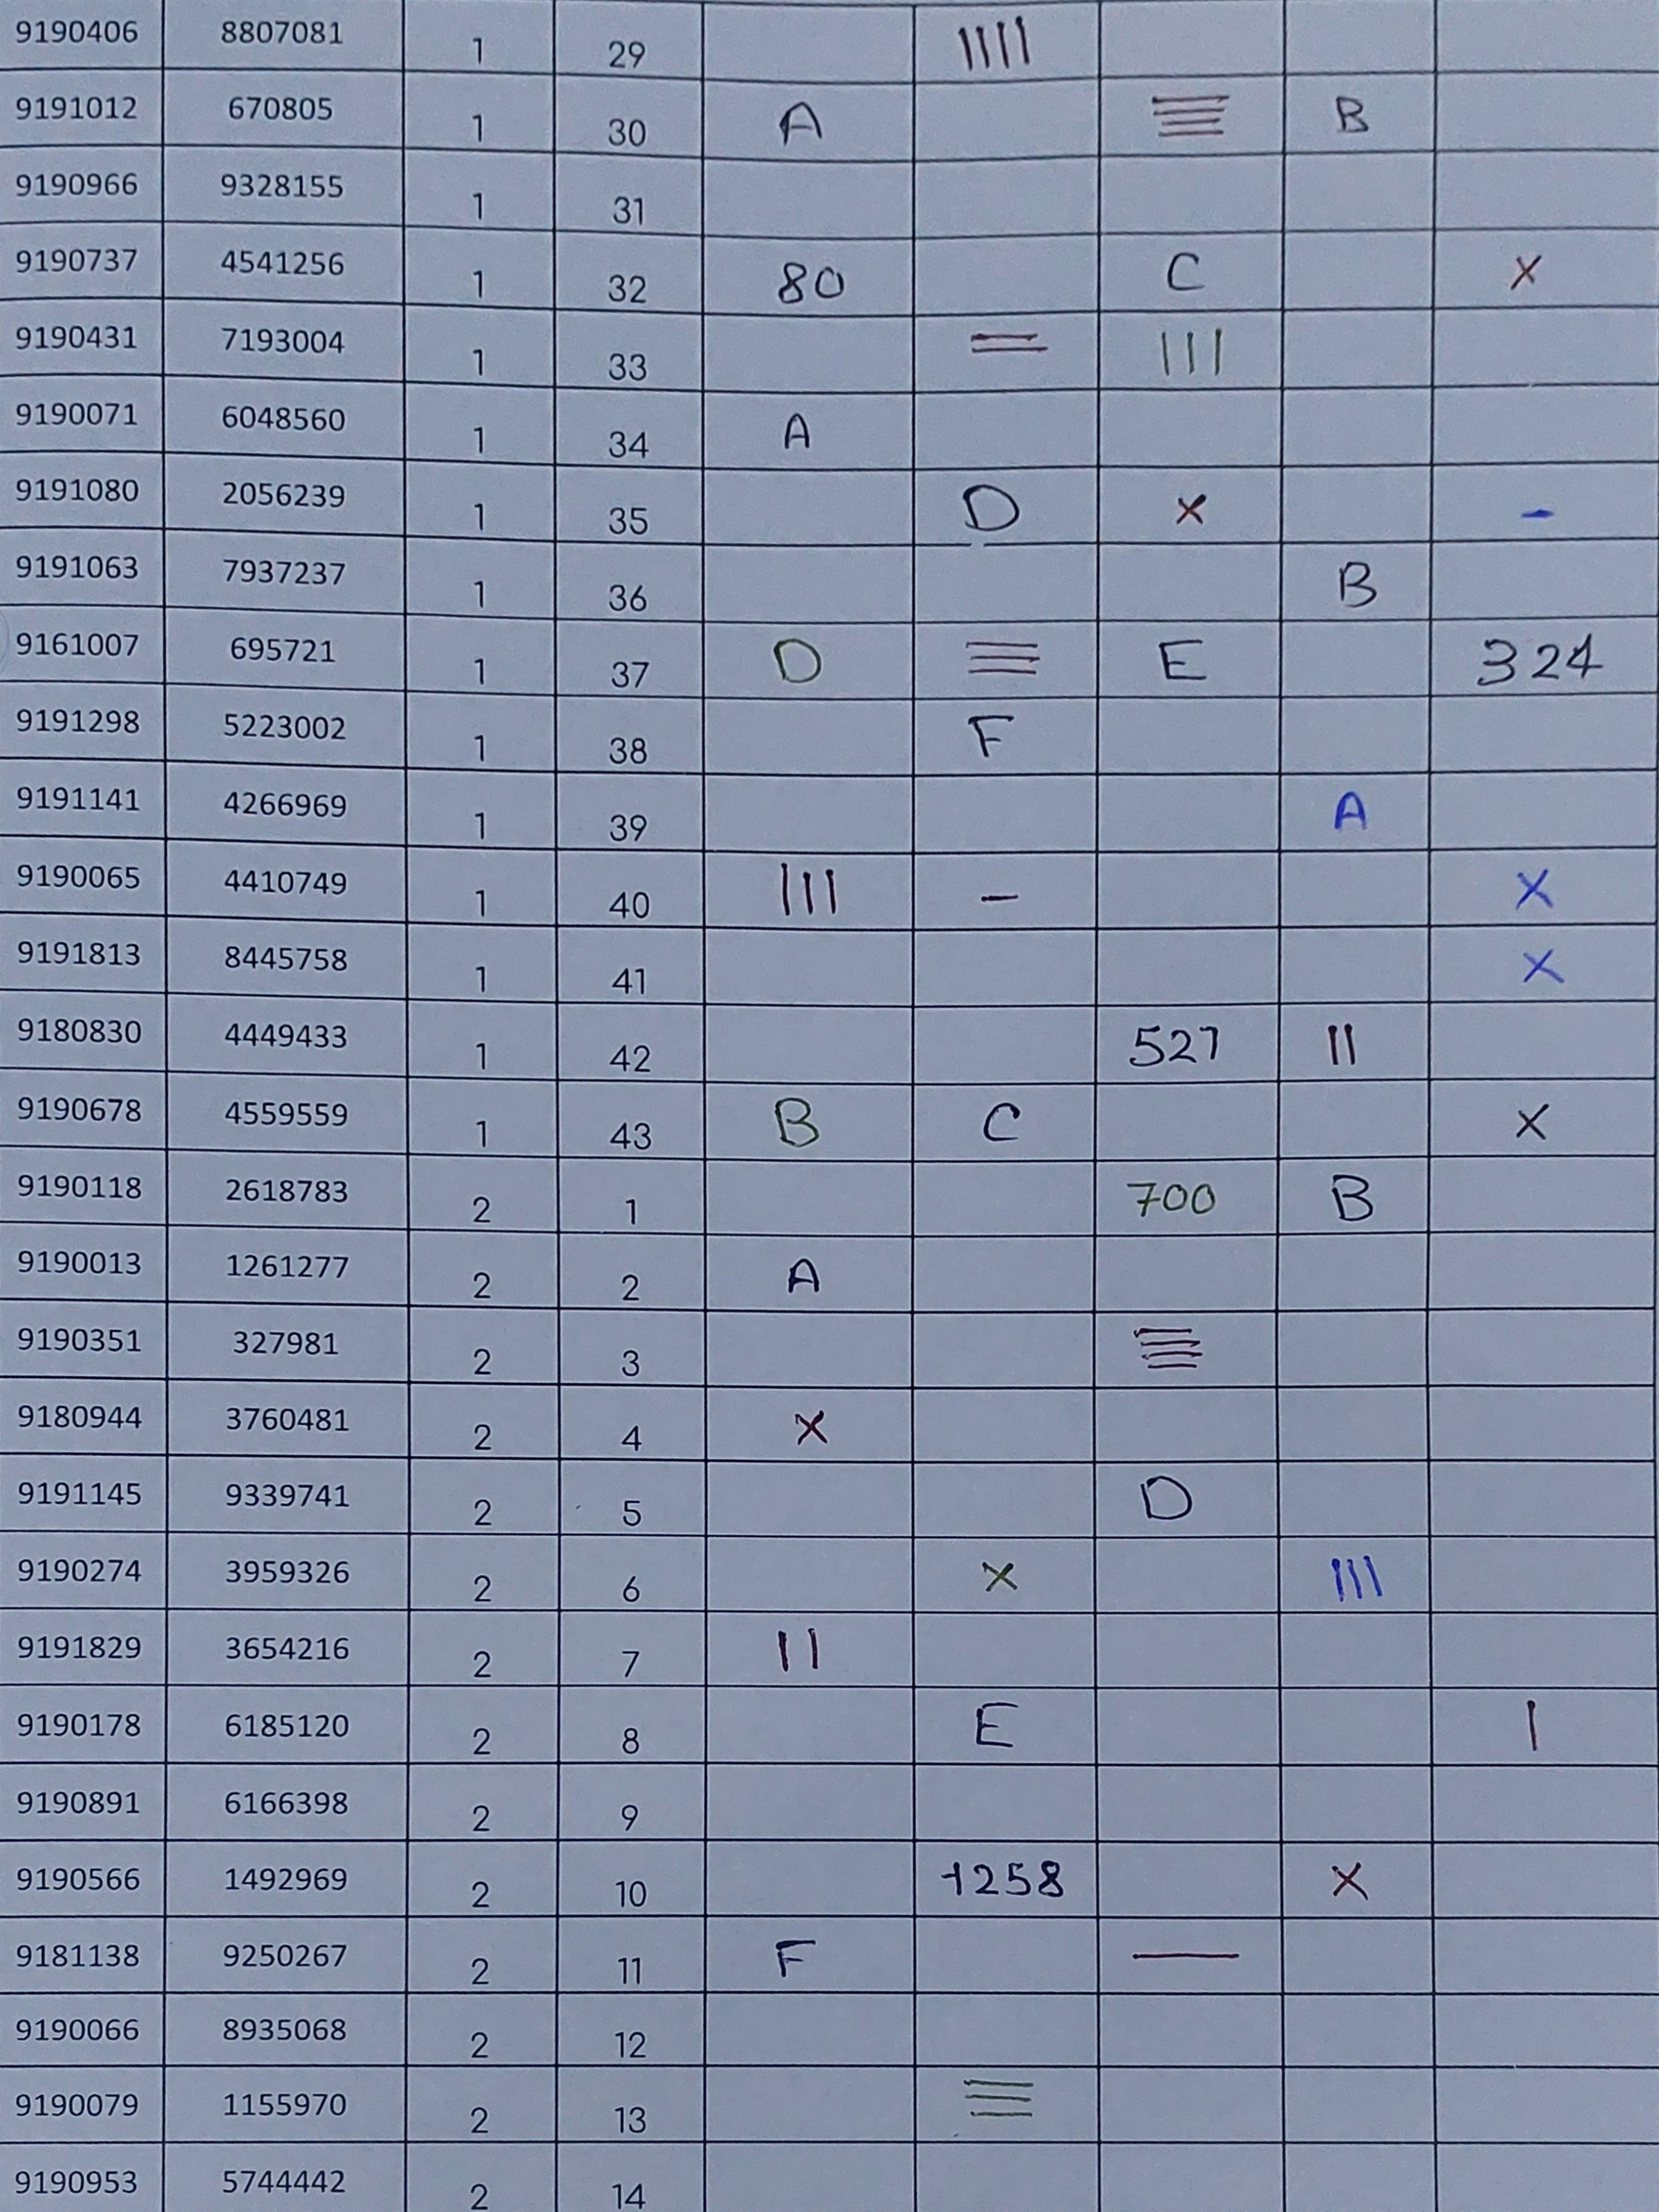 9190406 8807081 1 29 ||||
9191012 670805 1 30 A B
9190966 9328155 1 31
9190737 4541256 1 32 80 C X
9190431 7193004 1 33 = |||
9190071 6048560 1 34 A
9191080 2056239 1 35 D X -
9191063 7937237 1 36 B
9161007 695721 1 37 D ≡ E 324
9191298 5223002 1 38 F
9191141 4266969 1 39 A
9190065 4410749 1 40 ||| - X
9191813 8445758 1 41 X
9180830 4449433 1 42 527 ||
9190678 4559559 1 43 B C X
9190118 2618783 2 1 700 B
9190013 1261277 2 2 A
9190351 327981 2 3
9180944 3760481 2 4 X
9191145 9339741 2 5 D
9190274 3959326 2 6 X |||
9191829 3654216 2 7 ||
9190178 6185120 2 8 E |
9190891 6166398 2 9
9190566 1492969 2 10 1258 X
9181138 9250267 2 11 F —
9190066 8935068 2 12
9190079 1155970 2 13
9190953 5744442 2 14